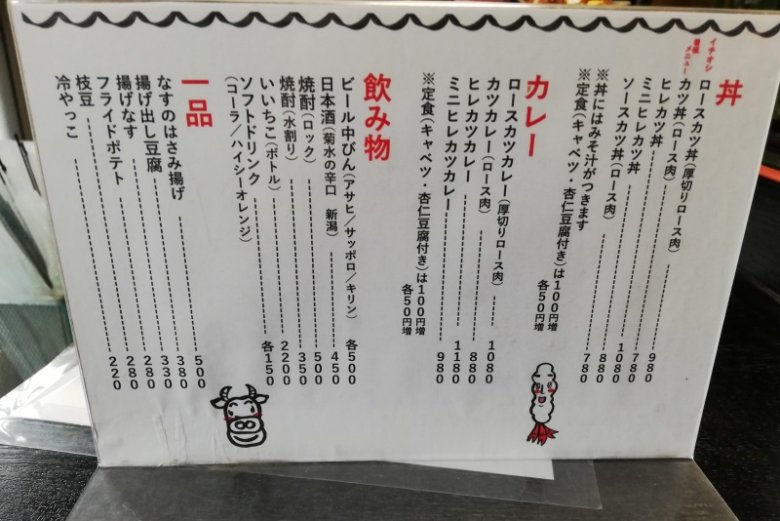 丼
イチオシ
看板
メニュー
ロースカツ丼（厚切りロース肉）980
カツ丼（ロース肉）780
ヒレカツ丼 1080
ミニヒレカツ丼 880
ソースカツ丼（ロース肉）780
※丼にはみそ汁がつきます
※定食（キャベツ・杏仁豆腐付き）は100円増
各50円増
カレー
ロースカツカレー（厚切りロース肉）1080
カツカレー（ロース肉）880
ヒレカツカレー 1180
ミニヒレカツカレー 980
※定食（キャベツ・杏仁豆腐付き）は100円増
各50円増
飲み物
ビール中びん（アサヒ／サッポロ／キリン）各500
日本酒（菊水の辛口 新潟）450
焼酎（ロック）500
焼酎（水割り）350
いいちこ（ボトル）2200
ソフトドリンク 各150
（コーラ／ハイシーオレンジ）
一品
なすのはさみ揚げ 500
揚げ出し豆腐 380
揚げなす 330
フライドポテト 280
枝豆 280
冷やっこ 220